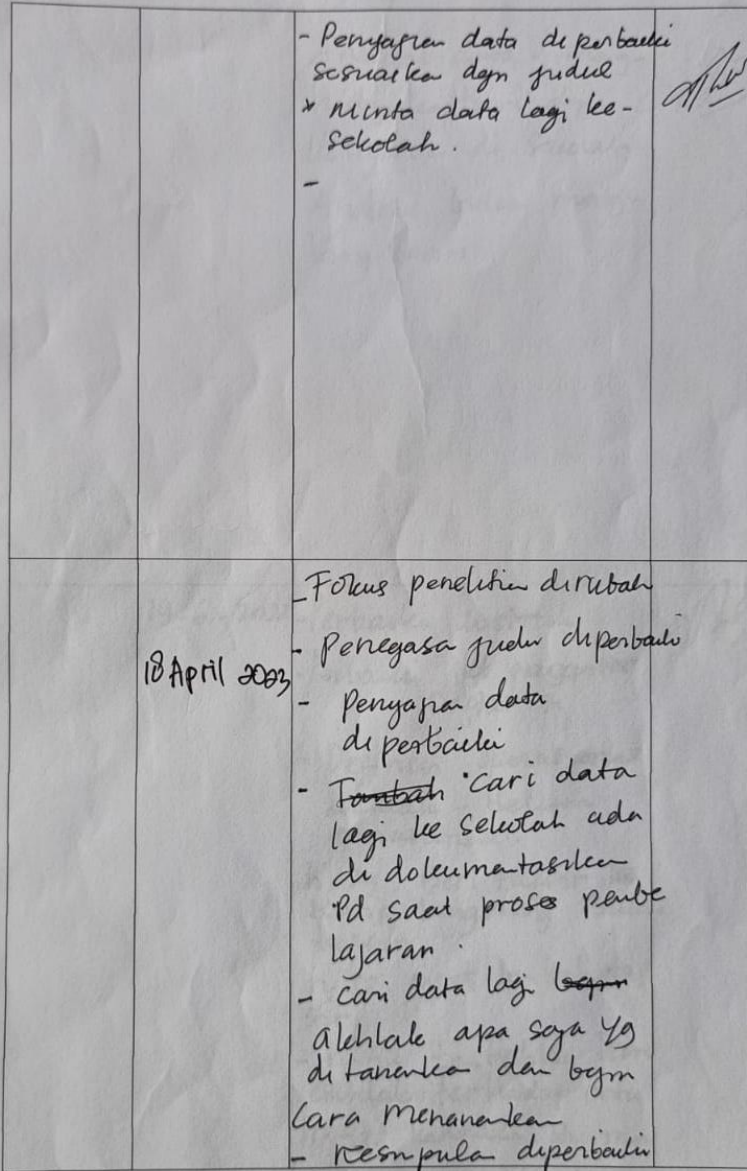 - Penyajian data diperbaiki
sesuaikan dgn judul
* Minta data lagi ke-
sekolah.
-
- Fokus penelitian dirubah
18 April 2023
- Penegasan judul diperbaiki
- Penyajian data
diperbaiki
- Tambah cari data
lagi ke sekolah ada
di dokumentasikan
Pd saat proses pembe
lajaran.
- Cari data lagi bgm
akhlak apa saja yg
di tanamkan dan bgm
Cara menanamkan
- Kesimpulan diperbaiki